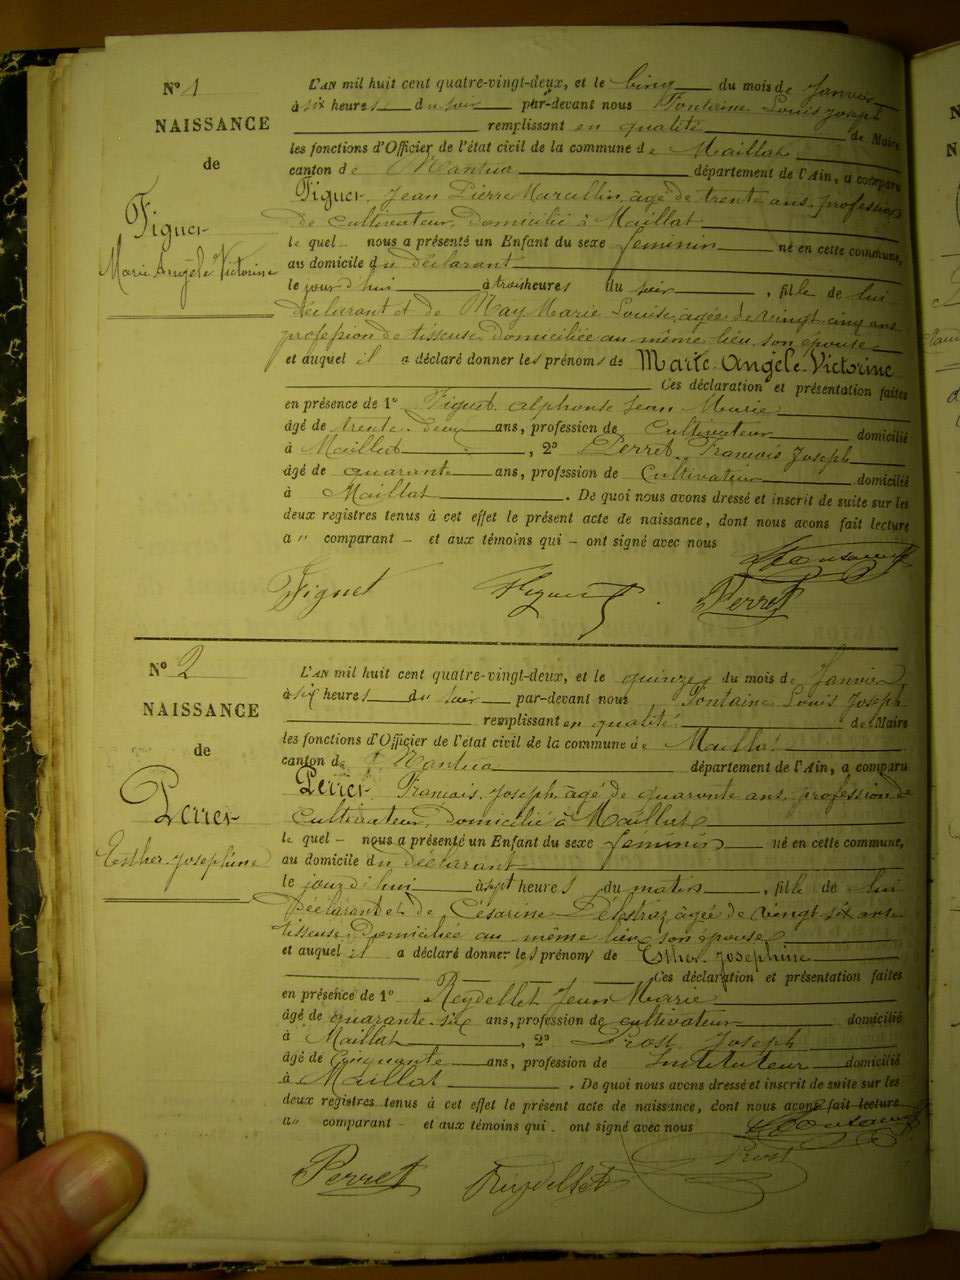 N° 1
NAISSANCE
de
Figuet
Marie Angèle Victorine
L'AN mil huit cent quatre-vingt-deux, et le Cinq du mois de Janvier
à six heures du soir par-devant nous Fontaine Louis Joseph
remplissant en qualité de Maire
les fonctions d'Officier de l'état civil de la commune de Maillat
canton de Nantua département de l'Ain, a comparu
Figuet Jean Pierre Marcellin, âgé de trente ans, profession
de cultivateur, Domicilié à Maillat
le quel nous a présenté un Enfant du sexe féminin né en cette commune,
au domicile du déclarant
le jour d'hui à trois heures du soir, fille de lui
déclarant et de May Marie Louise, agée de vingt cinq ans
profession de tisseuse Domiciliée au même lieu, son épouse
et auquel il a déclaré donner les prénoms de Marie-Angèle-Victorine
Ces déclaration et présentation faites
en présence de 1° Figuet Alphonse Jean Marie
âgé de trente-deux ans, profession de Cultivateur domicilié
à Maillat, 2° Perret François Joseph
âgé de quarante ans, profession de Cultivateur domicilié
à Maillat. De quoi nous avons dressé et inscrit de suite sur les
deux registres tenus à cet effet le présent acte de naissance, dont nous avons fait lecture
a" comparant - et aux témoins qui - ont signé avec nous
Figuet Figuet Perret
N° 2
NAISSANCE
de
Perret
Esther Josephine
L'AN mil huit cent quatre-vingt-deux, et le quinze du mois de Janvier
à six heures du soir par-devant nous Fontaine Louis Joseph
remplissant en qualité de Maire
les fonctions d'Officier de l'état civil de la commune de Maillat
canton de Nantua département de l'Ain, a comparu
Perret François Joseph, âgé de quarante ans, profession de
Cultivateur, Domicilié à Maillat
le quel - nous a présenté un Enfant du sexe féminin né en cette commune,
au domicile du déclarant
le jour d'hui à sept heures du matin, fille de lui
Déclarant et de Césarine Délestraz, agée de vingt six ans
tisseuse, Domiciliée au même lieu, son épouse
et auquel il a déclaré donner les prénoms de Esther Josephine
Ces déclaration et présentation faites
en présence de 1° Reydellet Jean Marie
âgé de quarante-six ans, profession de cultivateur domicilié
à Maillat, 2° Prost Joseph
âgé de Cinquante ans, profession de Instituteur domicilié
à Maillat. De quoi nous avons dressé et inscrit de suite sur les
deux registres tenus à cet effet le présent acte de naissance, dont nous avons fait lecture
a" comparant - et aux témoins qui - ont signé avec nous
Perret Reydellet Prost